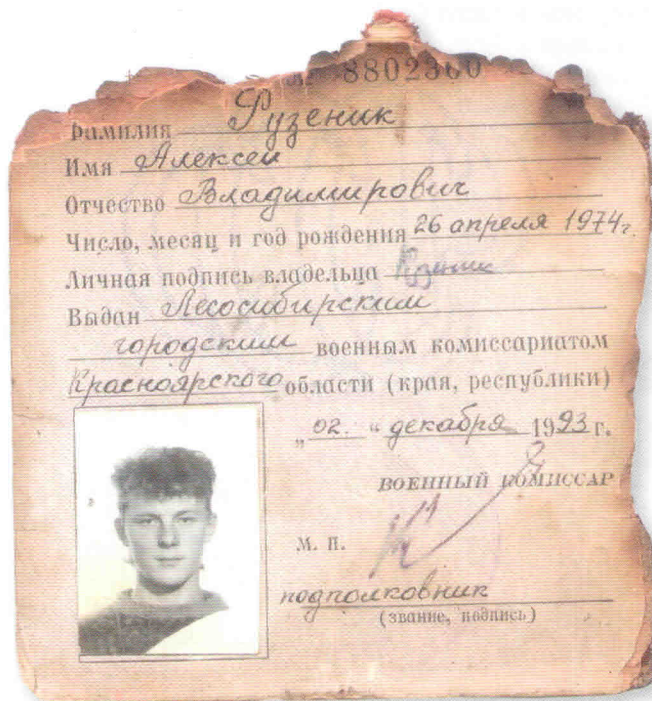 8802360
Фамилия Рузеник
Имя Алексей
Отчество Владимирович
Число, месяц и год рождения 26 апреля 1974г.
Личная подпись владельца
Выдан Лесосибирским
городским военным комиссариатом
Красноярского области (края, республики)
„02." декабря 1993 г.
ВОЕННЫЙ КОМИССАР
М. П.
подполковник
(звание, подпись)